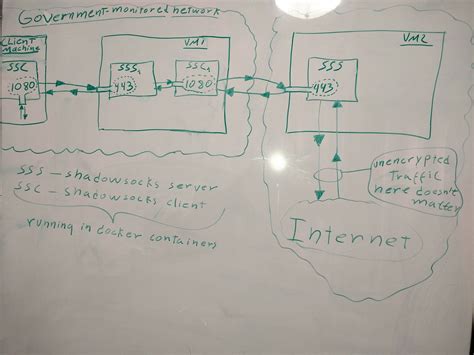 Government-monitored network
CLIENT
Machine
SSC
1080
VM1
SSS1
443
SSC1
1080
VM2
SSS
443
unencrypted
Traffic
here doesn't
matter
Internet
SSS - shadowsocks server
SSC - shadowsocks client
running in docker containers